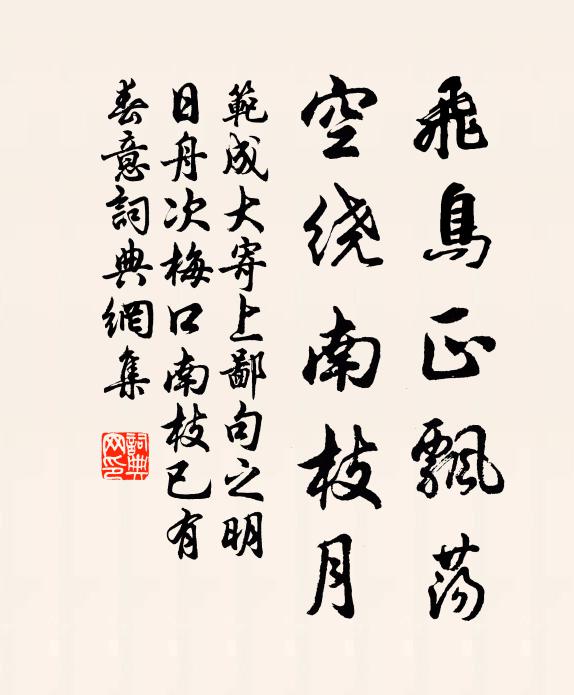 飛鳥正飄荡
空绕南枝月
範成大寄上鄙句之明
日舟次梅口南枝已有
春意詞典網集
詞典
网印